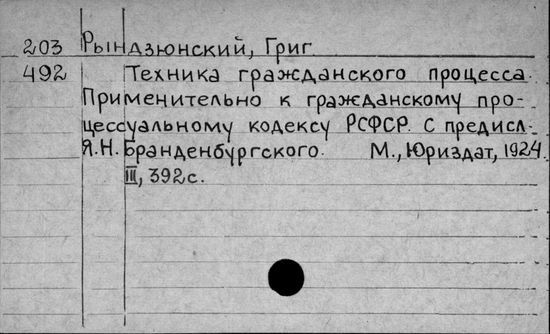 203 Рындзюнский, Григ
492 Техника гражданского процесса.
Применительно к гражданскому про-
цессуальному кодексу РСФСР. С предисл.
Я.Н. Бранденбургского. М., Юриздат, 1924.
III, 392с.